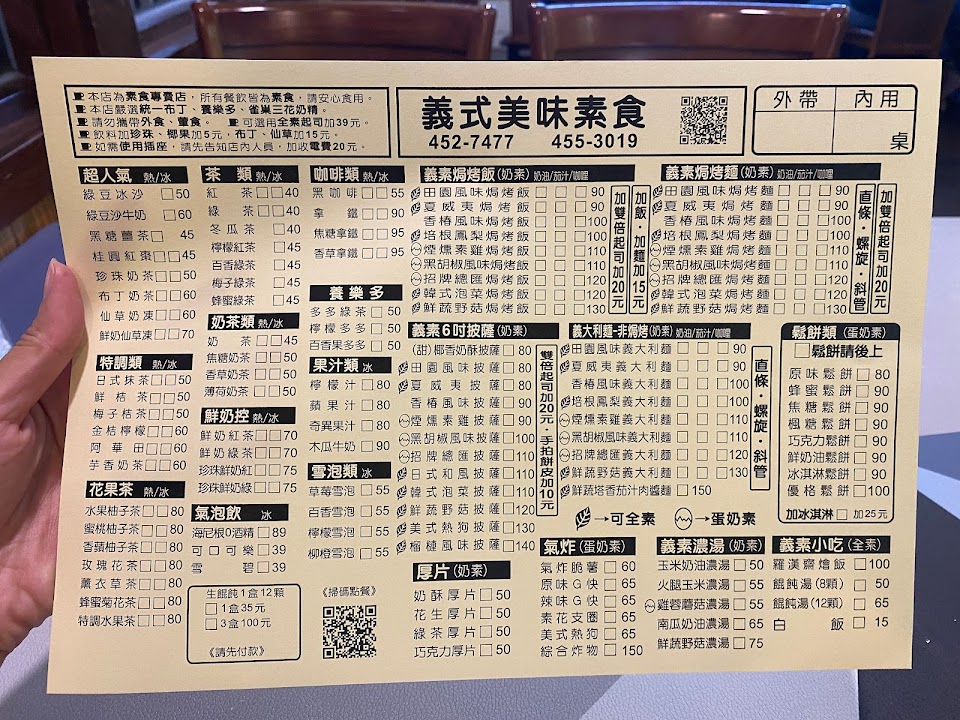 本店為素食專賣店，所有餐飲皆為素食，請安心食用。
本店嚴選統一布丁、養樂多、雀巢三花奶精。
請勿攜帶外食、葷食。 可選用全素起司加39元。
飲料加珍珠、椰果加5元，布丁、仙草加15元。
如需使用插座，請先告知店內人員，加收電費20元。
義式美味素食
452-7477 455-3019
外帶 內用
桌
超人氣 熱/冰
綠豆冰沙 50
綠豆沙牛奶 60
黑糖薑茶 45
桂圓紅棗 45
珍珠奶茶 50
布丁奶茶 60
仙草奶凍 70
鮮奶仙草凍 70
特調類 熱/冰
日式抹茶 50
鮮桔茶 50
梅子桔茶 50
金桔檸檬 60
阿華田 60
芋香奶茶 60
花果茶 熱/冰
水果柚子茶 80
蜜桃柚子茶 80
香蘋柚子茶 80
玫瑰花茶 80
薰衣草茶 80
蜂蜜菊花茶 80
特調水果茶 80
茶類 熱/冰
紅茶 40
綠茶 40
冬瓜茶 40
檸檬紅茶 45
百香綠茶 45
梅子綠茶 45
蜂蜜綠茶 45
奶茶類 熱/冰
奶茶 45
焦糖奶茶 50
香草奶茶 50
薄荷奶茶 50
鮮奶控 熱/冰
鮮奶紅茶 70
鮮奶綠茶 70
珍珠鮮奶紅 75
珍珠鮮奶綠 75
氣泡飲 冰
海尼根0酒精 89
可口可樂 39
雪碧 39
生餛飩1盒12顆
1盒35元
3盒100元
《請先付款》
咖啡類 熱/冰
黑咖啡 55
拿鐵 90
焦糖拿鐵 95
香草拿鐵 95
養樂多
多多綠茶 50
檸檬多多 50
百香果多多 50
果汁類 冰
檸檬汁 80
蘋果汁 80
奇異果汁 80
木瓜牛奶 90
雪泡類 冰
草莓雪泡 55
百香雪泡 55
檸檬雪泡 55
柳橙雪泡 55
《掃碼點餐》
義素焗烤飯(奶素) 奶油/茄汁/咖哩
田園風味焗烤飯 90
夏威夷焗烤飯 90
香椿風味焗烤飯 100
培根鳳梨焗烤飯 100
煙燻素雞焗烤飯 110
黑胡椒風味焗烤飯 110
招牌總匯焗烤飯 120
韓式泡菜焗烤飯 120
鮮蔬野菇焗烤飯 130
加雙倍起司加20元
加飯．加麵加15元
義素焗烤麵(奶素) 奶油/茄汁/咖哩
田園風味焗烤麵 90
夏威夷焗烤麵 90
香椿風味焗烤麵 100
培根鳳梨焗烤麵 100
煙燻素雞焗烤麵 110
黑胡椒風味焗烤麵 110
招牌總匯焗烤麵 120
韓式泡菜焗烤麵 120
鮮蔬野菇焗烤麵 130
直條．螺旋．斜管
加雙倍起司加20元
義素6吋披薩(奶素)
(甜)椰香奶酥披薩 80
田園風味披薩 80
夏威夷披薩 80
香椿風味披薩 90
煙燻素雞披薩 90
黑胡椒風味披薩 100
招牌總匯披薩 110
日式和風披薩 110
韓式泡菜披薩 110
鮮蔬野菇披薩 120
美式熱狗披薩 130
榴槤風味披薩 140
雙倍起司加20元．手拍餅皮加10元
義大利麵-非焗烤(奶素) 奶油/茄汁/咖哩
田園風味義大利麵 90
夏威夷義大利麵 90
香椿風味義大利麵 100
培根鳳梨義大利麵 100
煙燻素雞義大利麵 110
黑胡椒風味義大利麵 110
招牌總匯義大利麵 120
韓式泡菜義大利麵 120
鮮蔬野菇義大利麵 130
鮮蔬塔香茄汁肉醬麵 150
直條．螺旋．斜管
→可全素 →蛋奶素
鬆餅類(蛋奶素)
鬆餅請後上
原味鬆餅 80
蜂蜜鬆餅 90
焦糖鬆餅 90
楓糖鬆餅 90
巧克力鬆餅 90
鮮奶油鬆餅 90
冰淇淋鬆餅 90
優格鬆餅 100
加冰淇淋 加25元
厚片(奶素)
奶酥厚片 50
花生厚片 50
綠茶厚片 50
巧克力厚片 50
氣炸(蛋奶素)
氣炸脆薯 60
原味G快 65
辣味G快 65
素花支圈 65
美式熱狗 65
綜合炸物 150
義素濃湯(奶素)
玉米奶油濃湯 50
火腿玉米濃湯 55
雞蓉蘑菇濃湯 55
南瓜奶油濃湯 65
鮮蔬野菇濃湯 75
義素小吃(全素)
羅漢齋燴飯 100
餛飩湯(8顆) 50
餛飩湯(12顆) 65
白飯 15